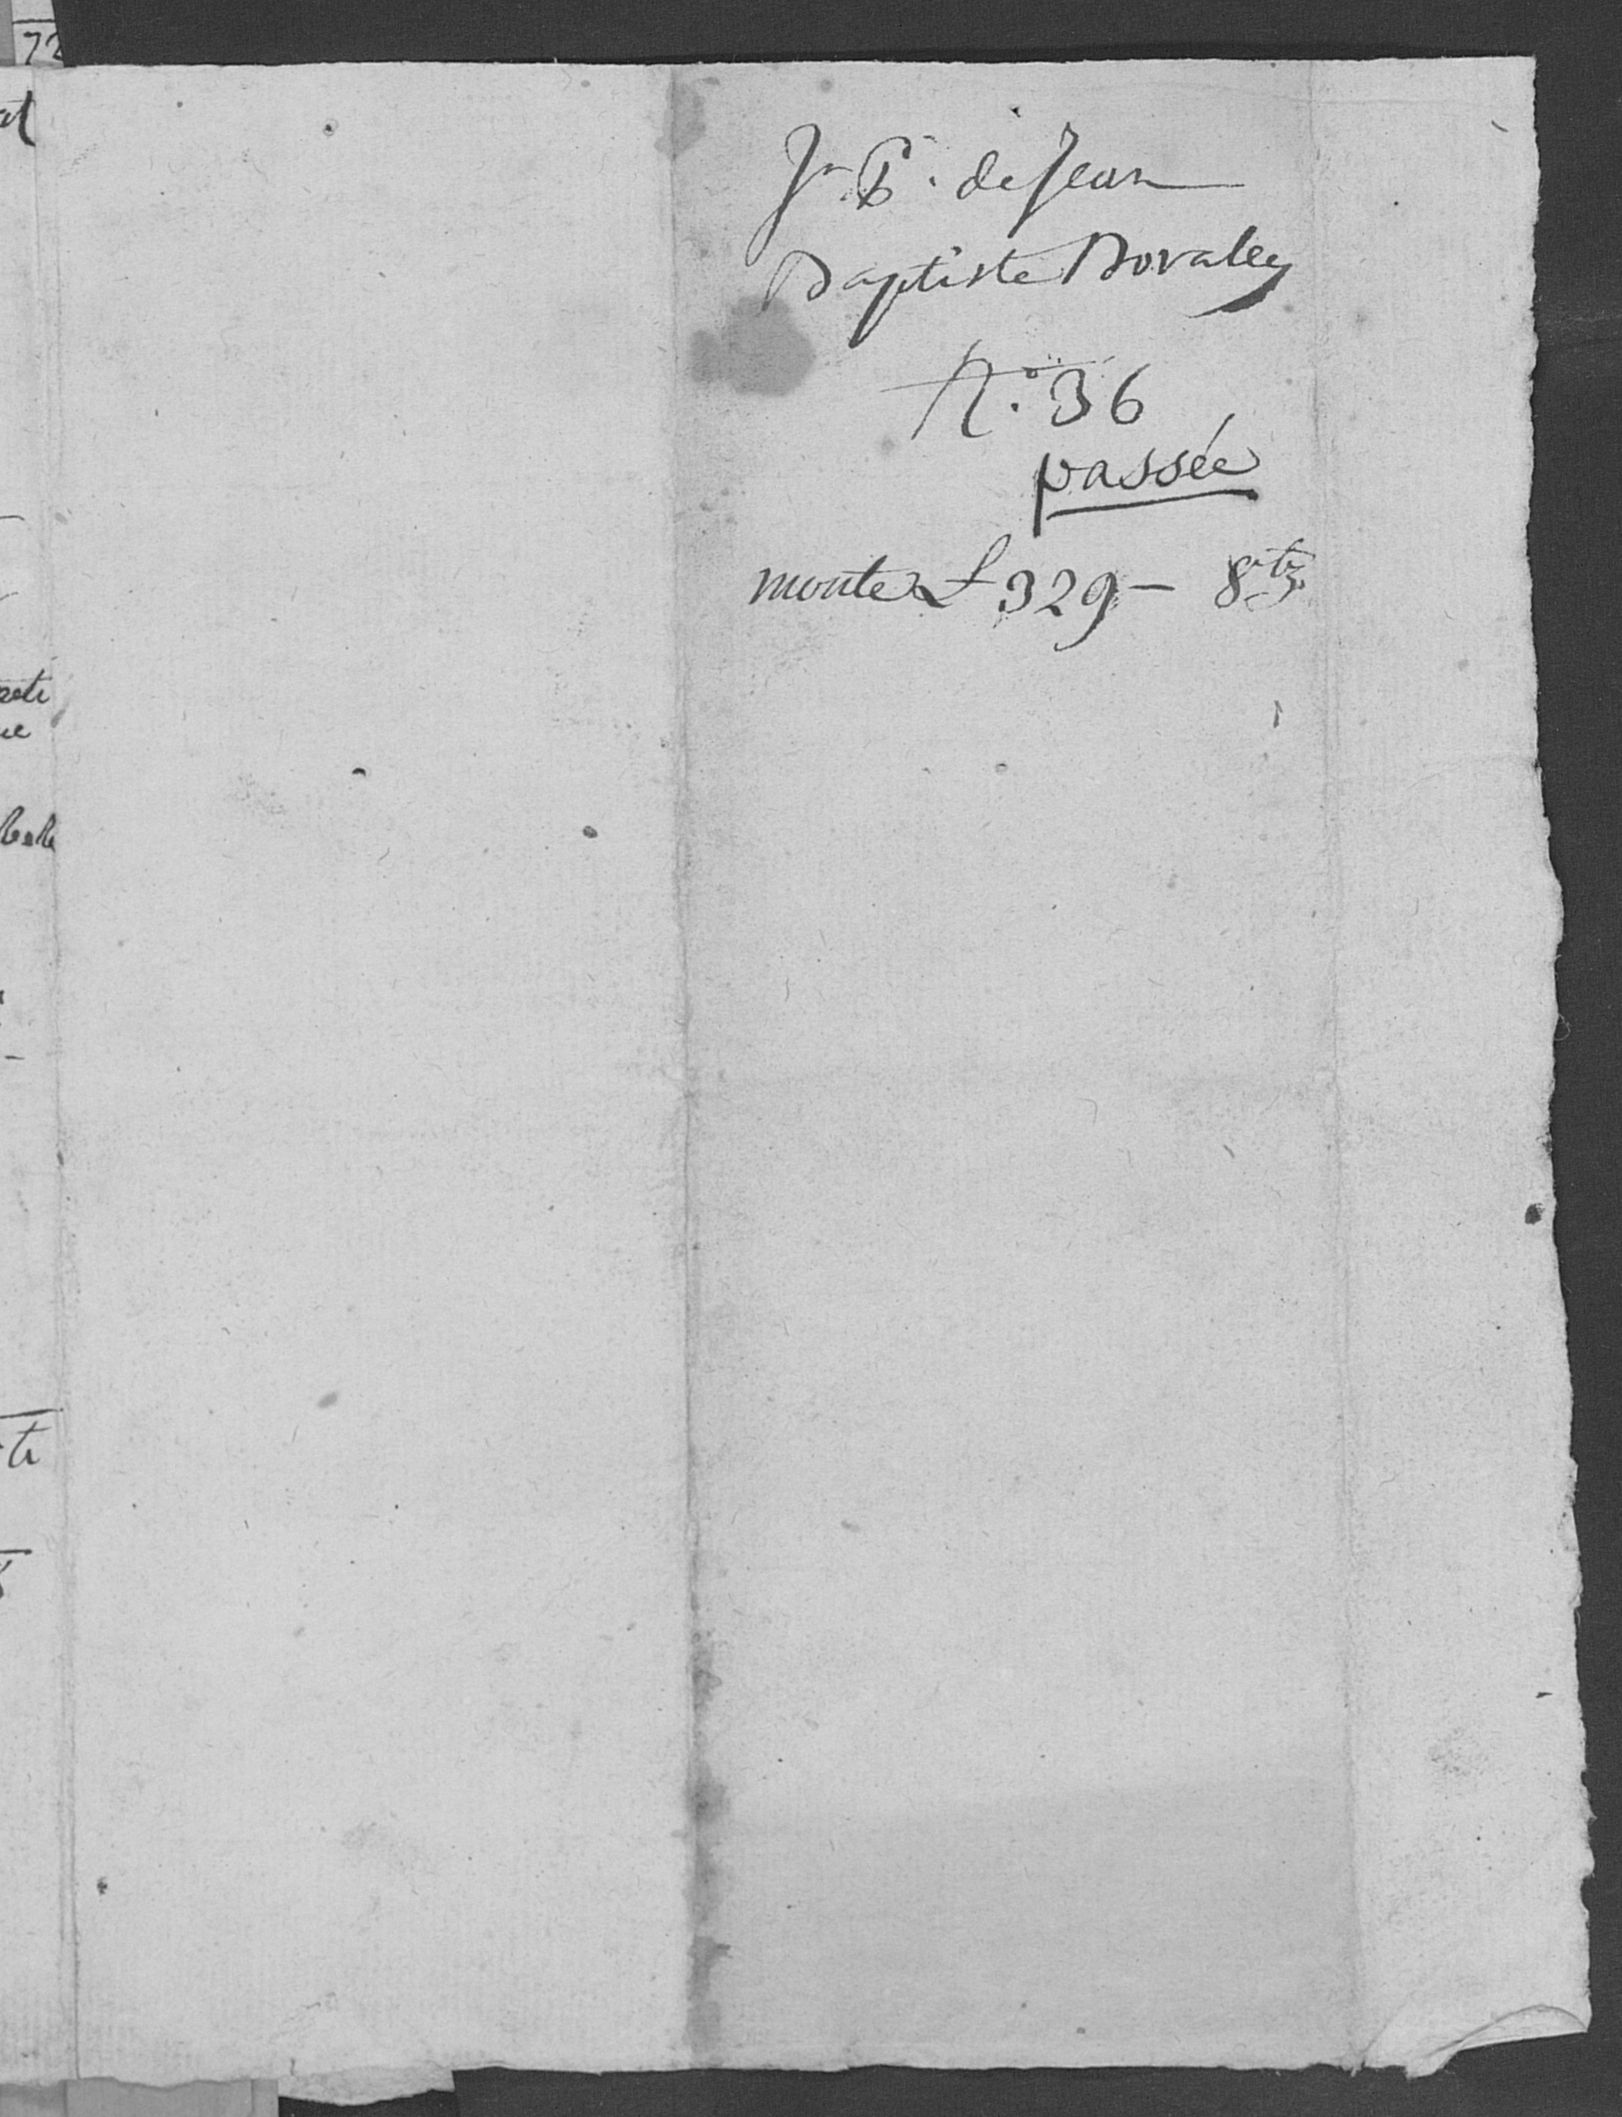 Jn. B. de Jean
Baptiste Bovaley
No. 36
passée
monte £ 329 - 8 tz